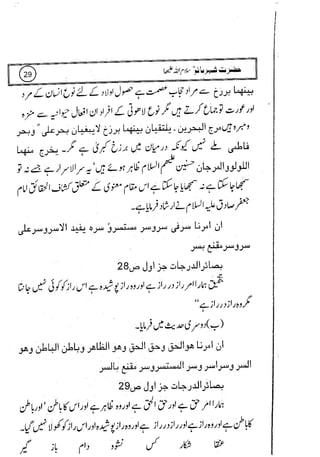 حضرت شہر بانو سلام اللہ علیہا
29
بینھما برزخ سے مراد حجاب عصمت ہے حصول اولاد کے لئے نوع انسان کے مرد
اور عورت تو جماع کرتے ہیں مگر نوع لاھوتی کے افراد ان افعال حیوانیہ سے منزہ
ومبرہ ہیں مرج البحرین۔ یلتقیان بینھما برزخ لایبغیان بحر علی و بحر
فاطمی ملے نہیں کیونکہ درمیان میں برزخ کبریٰ ہے مگر۔ یخرج منھما
اللولووالمرجان حسنین علیھم السلام ظاہر ہوئے ہیں یہ سرالاسرار ہے جسے نہ تو
سمجھا جا سکتا ہے نہ سمجھایا جا سکتا ہے اس مقام معنوی کے متعلق کشاف الحقائق امام
جعفر صادق علیہ السلام نے ارشاد فرمایا ہے۔
ان امرنا سرفی سروسر مستسرو سره یفید الاسروسرعلی
سروسرمقنع بسر
بصائرالدرجات جز اول ص28
بتحقیق ہمارا امر راز در راز ہے اور وہ راز پوشیدہ ہے اس راز کو کوئی نہیں جانتا
مگر وہ راز در راز ہے"
(ب) دوسری حدیث میں فرمایا۔
ان امرنا هوالحق وحق الحق وهو الظاهر وباطن الباطن وهو
السر وسراسر وسر المستسروسر مقنع بالسر
بصائرالدرجات جز اول ص29
ہمارا امر حق ہے اور حق الحق ہے اور وہ ظاہر ہے اور اس کا باطن اور باطن
کا باطن ہے اور وہ راز ہے اور راز در راز ہے اور وہ راز پوشیدہ اور اس راز کو کھولا نہیں گیا۔
عنقا شکار کس نشود دام باز گیر